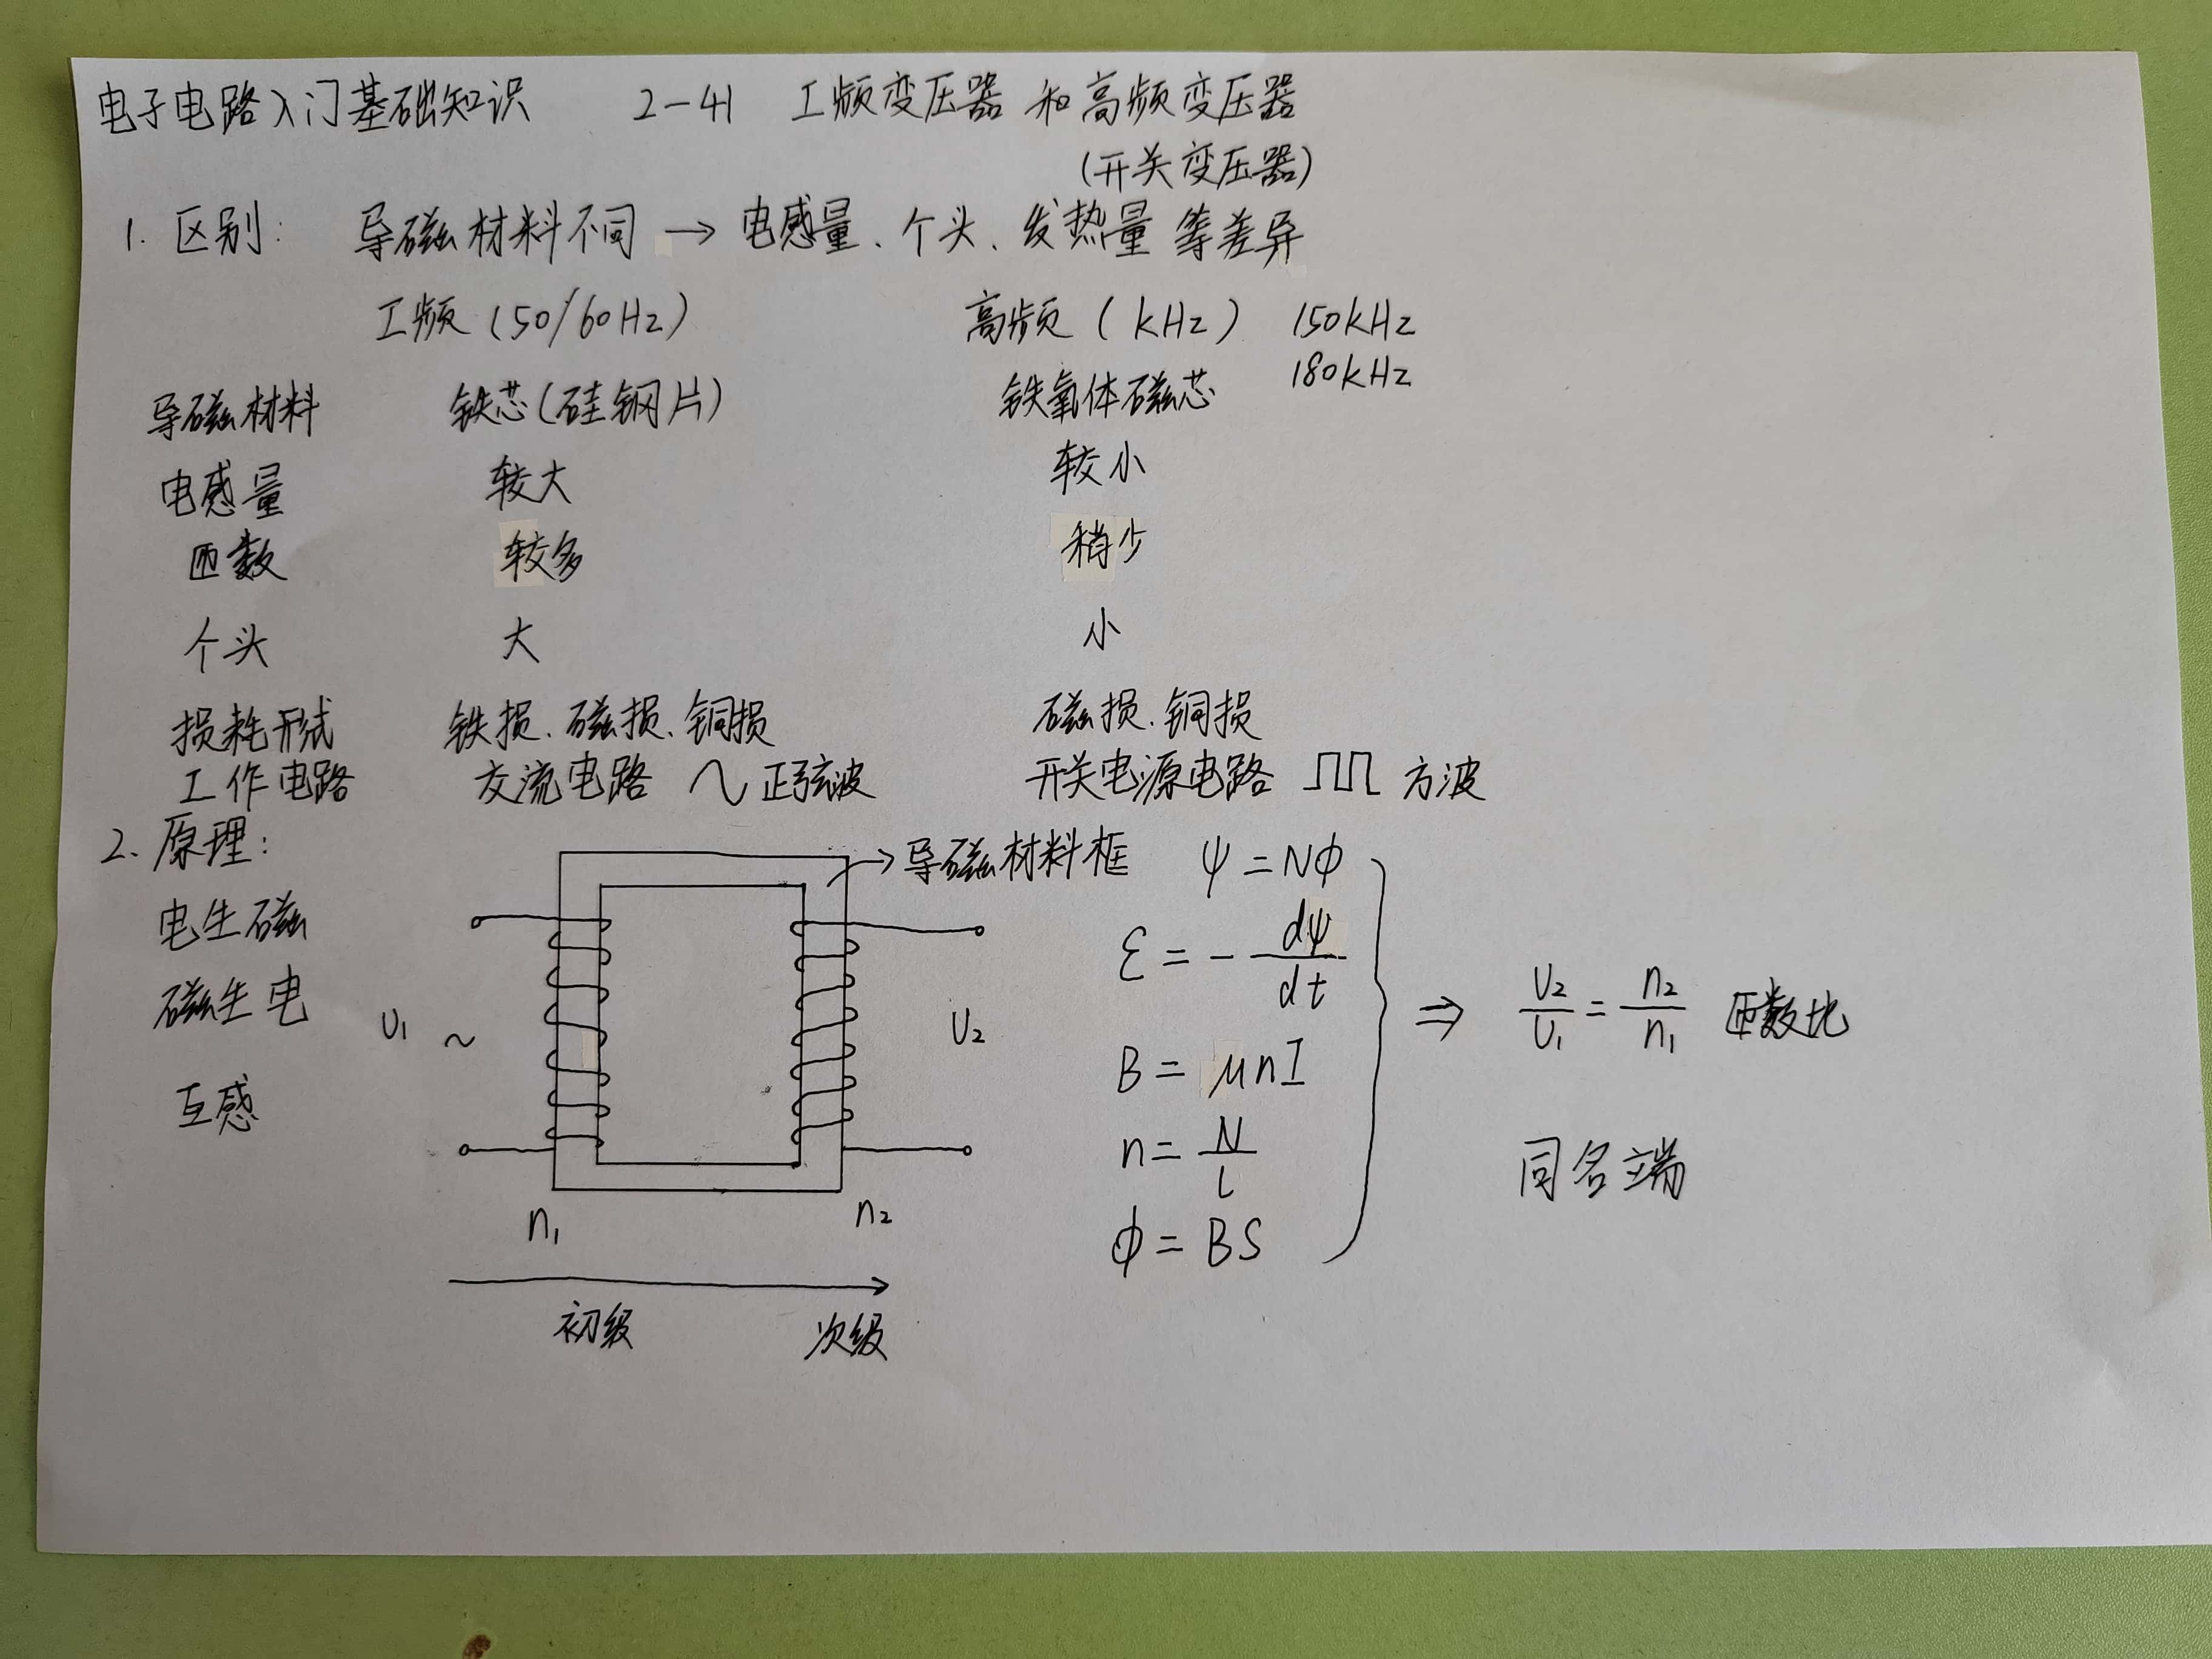 电子电路入门基础知识 2-41 工频变压器 和高频变压器
(开关变压器)
1. 区别: 导磁材料不同 → 电感量、个头、发热量 等差异
工频 (50/60Hz) 高频 (kHz) 150kHz
180kHz
导磁材料 铁芯(硅钢片) 铁氧体磁芯
电感量 较大 较小
匝数 较多 稍少
个头 大 小
损耗形式 铁损、磁损、铜损 磁损、铜损
工作电路 交流电路 ~ 正弦波 开关电源电路 方波
2. 原理:
→导磁材料框
电生磁
磁生电
互感
U₁ ~ U₂
n₁ n₂
初级 次级
ψ = NΦ
ε = - dψ/dt
B = μnI
n = N/l
Φ = BS
⇒ U₂/U₁ = n₂/n₁ 匝数比
同名端